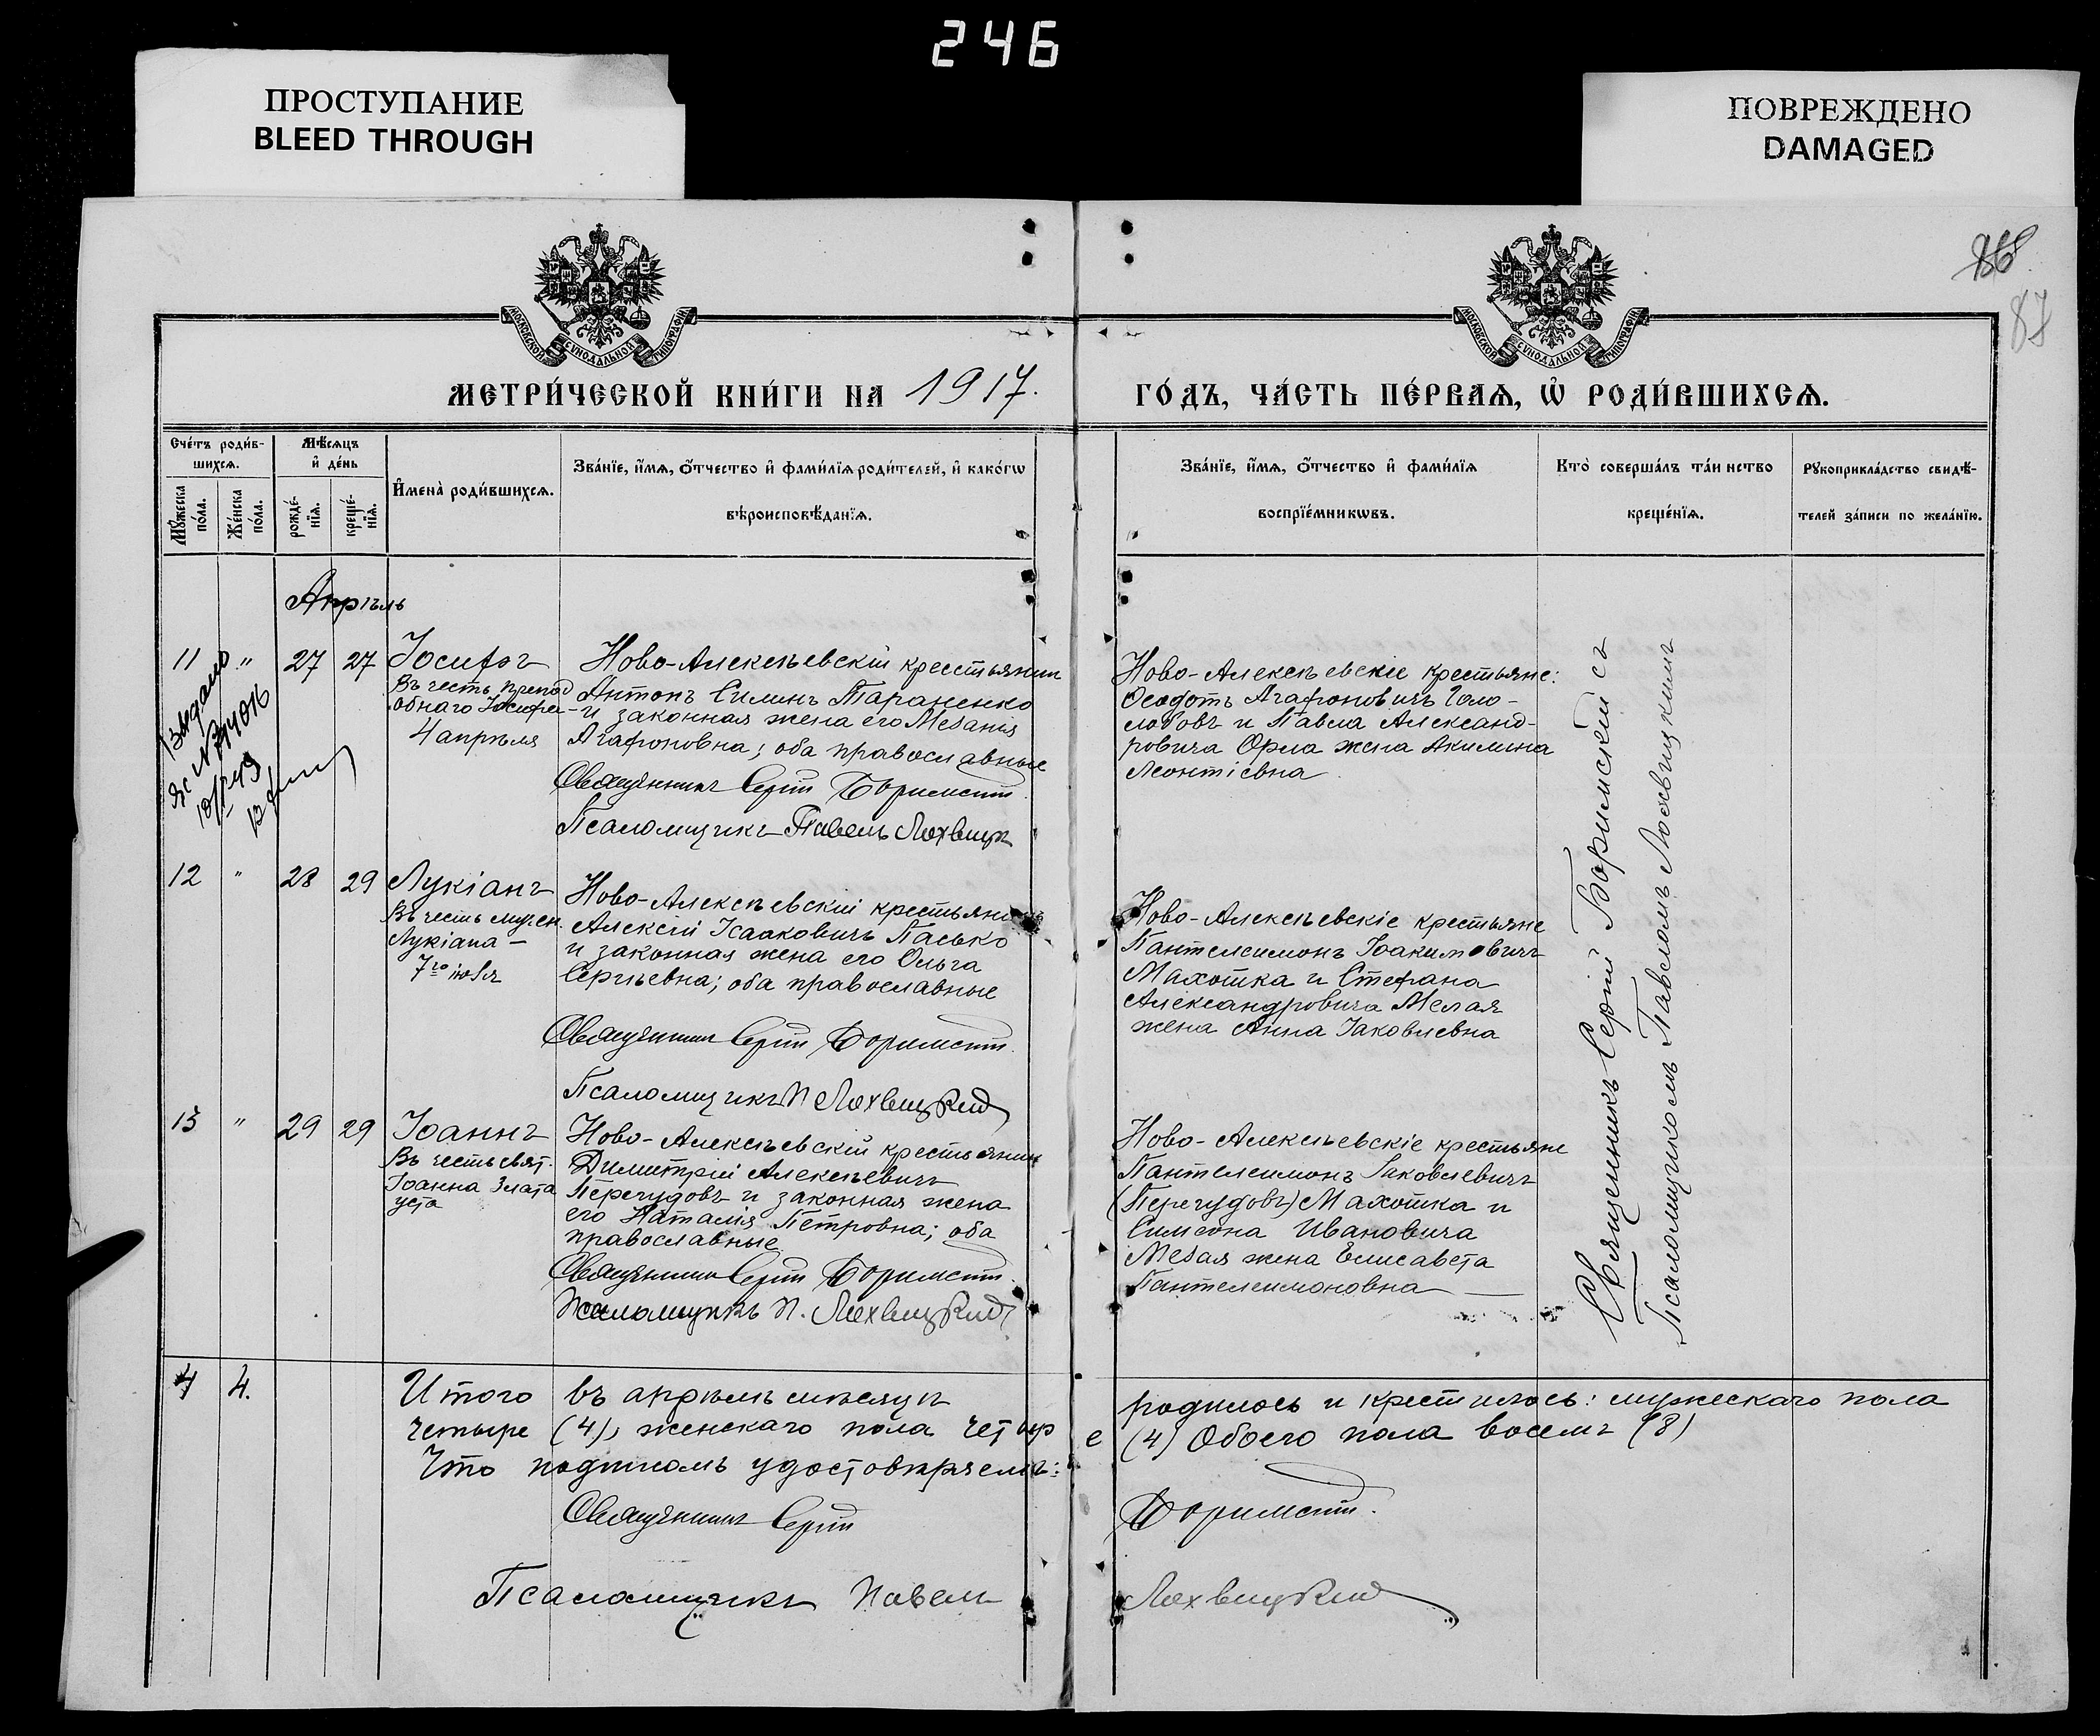 246
ПРОСТУПАНИЕ
BLEED THROUGH
ПОВРЕЖДЕНО
DAMAGED
86
87
МОСКОВСКОЙ СѴНОДАЛЬНОЙ ТИПОГРАФІИ
МОСКОВСКОЙ СѴНОДАЛЬНОЙ ТИПОГРАФІИ
МЕТРИ́ЧЕСКОЙ КНИ́ГИ НА 1917. ГО́ДЪ, ЧА́СТЬ ПЕ́РВАѦ, Ѡ҆ РОДИ́ВШИХСѦ.
Сче́тъ роди́в-
шихсѧ.
Мꙋ́жеска
по́ла.
Же́нска
по́ла.
Мѣ́сѧцъ
и҆ де́нь
рожде́-
нїѧ.
креще́-
нїѧ.
И҆мена̀ роди́вшихсѧ.
Зва́нїе, и҆́мѧ, ѻ҆́тчество и҆ фами́лїѧ роди́телей, и҆ како́гѡ
вѣроисповѣ́данїѧ.
Зва́нїе, и҆́мѧ, ѻ҆́тчество и҆ фами́лїѧ
воспрїе́мникѡвъ.
Кто̀ соверша́лъ та́инство
креще́нїѧ.
Рꙋкоприкла́дство свидѣ́-
телей за́писи по жела́нїю.
Апрѣль
11 " 27 27 Іосифъ
Въ честь препод
обнаго Іосифа –
4 апрѣля
Выдано
Ново-Алексѣевскій крестьянин
Антонъ Силинъ Тараненко
и законная жена его Меланія
Агафоновна; оба православные
Священникъ Сергій Боримскій.
Псаломщикъ Павелъ Лохвицк
Ново-Алексѣевскіе крестьяне:
Ѳеодотъ Агафоновичъ Голо-
лобовъ и Павла Александ-
ровича Орла жена Акилина
Леонтіевна
12 " 28 29 Лукіанъ
Въ честь мучен.
Лукіана –
7го
Ново-Алексѣевскій крестьянин
Алексій Исааковичъ Пасько
и законная жена его Ольга
Сергѣевна; оба православные
Священникъ Сергій Боримскій.
Псаломщикъ П Лохвицкій
Ново-Алексѣевскіе крестьяне
Пантелеимонъ Іоакимовичъ
Махотка и Стефана
Александровича Мелая
жена Анна Іаковлевна
13 " 29 29 Іоаннъ
Въ честь свят.
Іоанна Злато
уста
Ново-Алексѣевскій крестьянин
Димитрій Алексѣевичъ
Перечудовъ и законная жена
его Наталія Петровна; оба
православные
Священникъ Сергій Боримскій.
Псаломщикъ П. Лохвицкій
Ново-Алексѣевскіе крестьяне
Пантелеимонъ Іаковлевичъ
(Перечудовъ) Махотка и
Симеона Ивановича
Мелая жена Елисавета
Пантелеимоновна
Священникъ Сергій Боримскій съ
Псаломщикомъ Павломъ Лохвицкимъ
4 4. Итого въ апрѣлѣ мѣсяцѣ родилось и крестилось: мужескаго пола
четыре (4), женскаго пола четыре (4) Обоего пола восемь (8)
Что подписомъ удостовѣряемъ:
Священникъ Сергій Боримскій.
Псаломщикъ Павелъ Лохвицкій